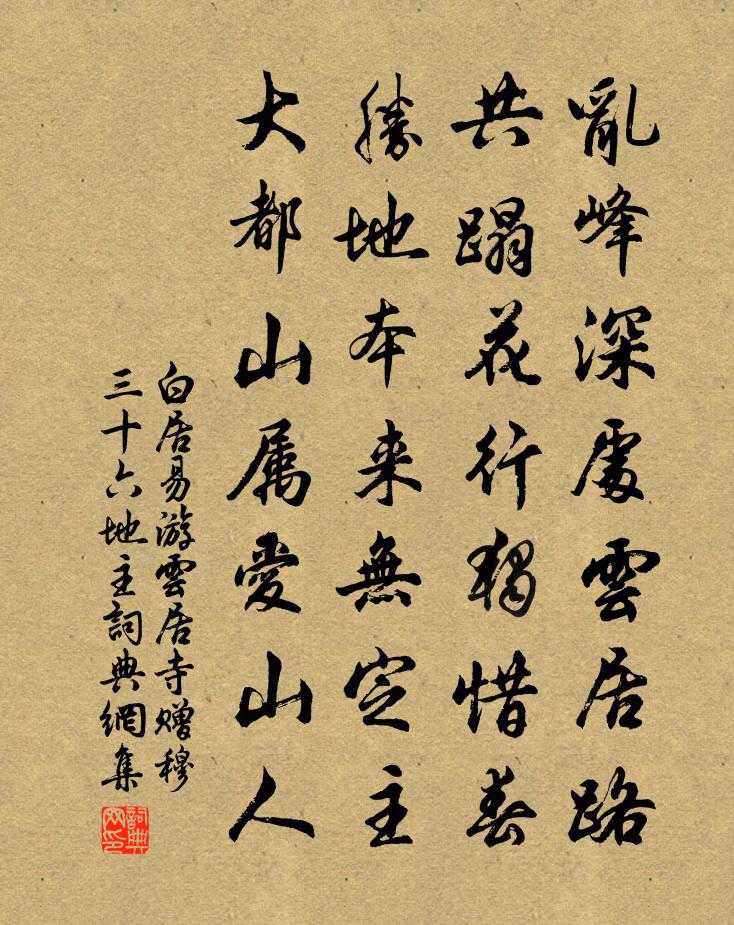 亂峰深處雲居路
共蹋花行獨惜春
勝地本来無定主
大都山属愛山人
白居易游雲居寺赠穆
三十六地主詞典網集
詞典网印